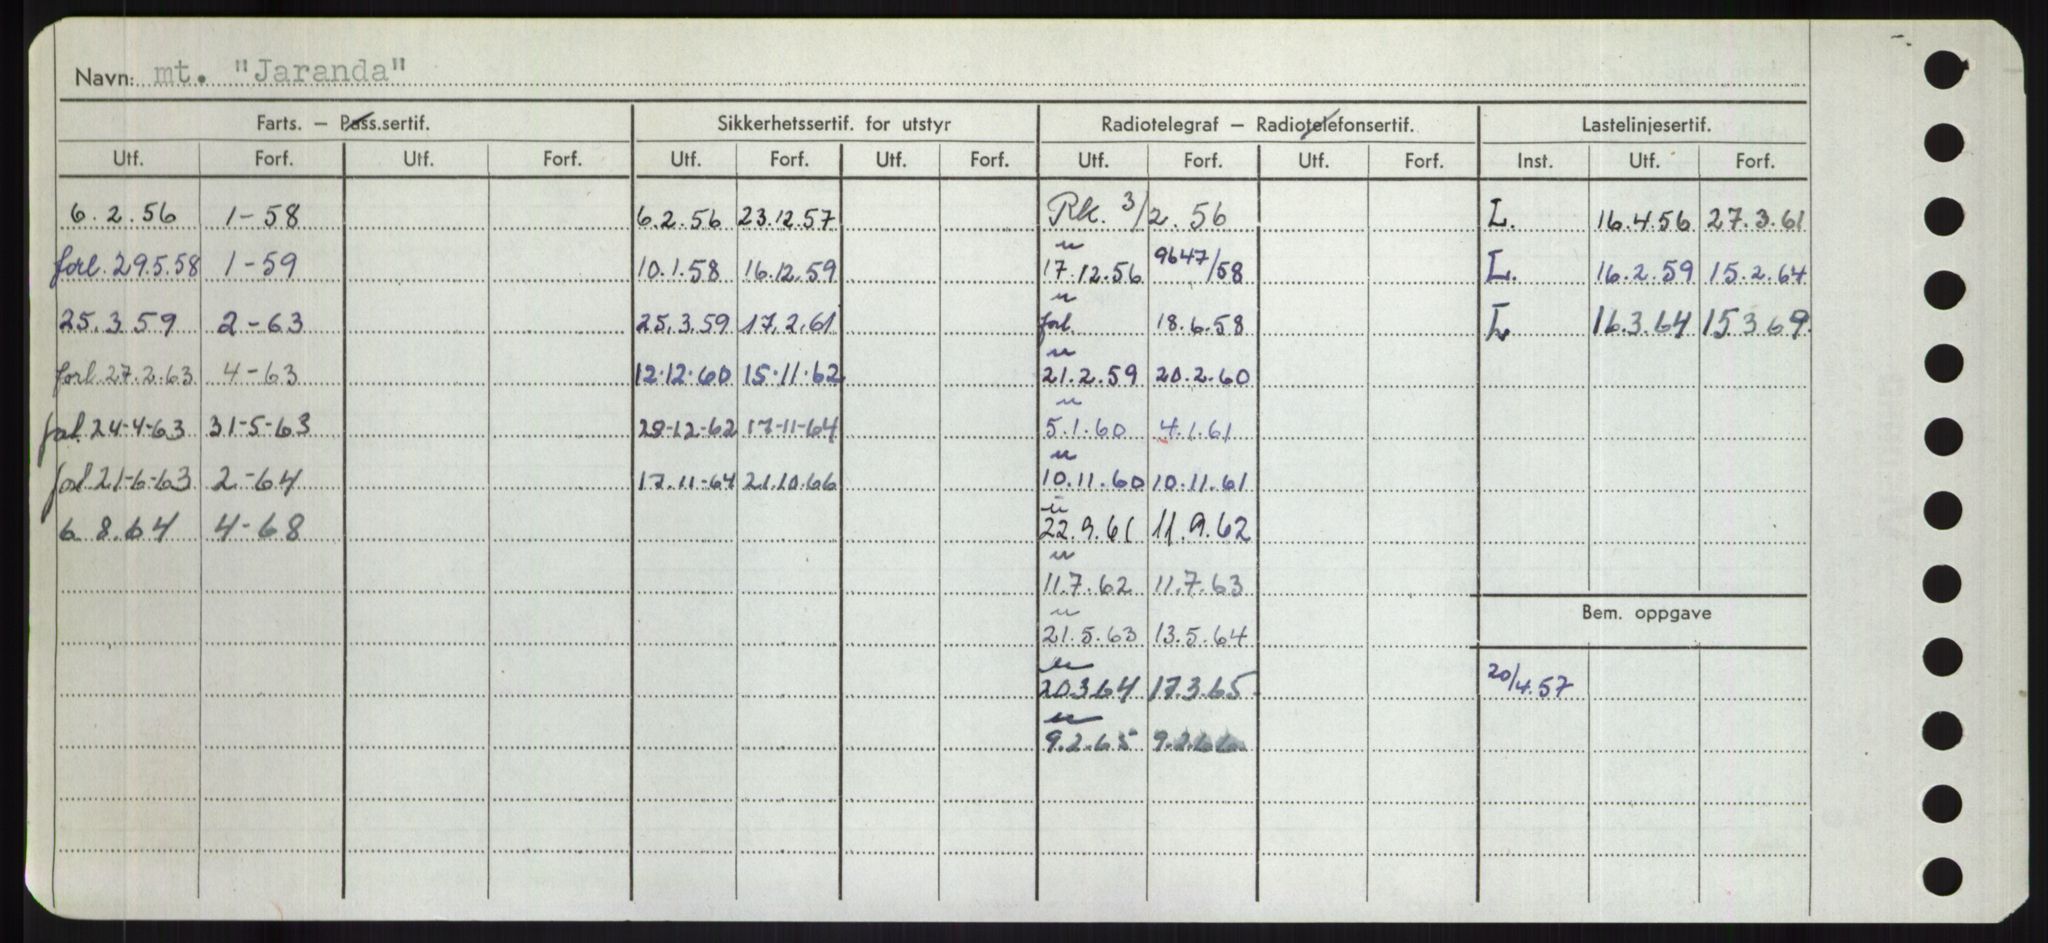 Navn: mt. "Jaranda"
Farts. — Pass.sertif. Sikkerhetssertif. for utstyr Radiotelegraf — Radiotelefonsertif. Lastelinjesertif.
Utf. Forf. Utf. Forf. Utf. Forf. Utf. Forf. Utf. Forf. Utf. Forf. Inst. Utf. Forf.
6.2.56 1-58 6.2.56 23.12.57 Rk. 3/2.56 L. 16.4.56 27.3.61
forl. 29.5.58 1-59 10.1.58 16.12.59 " 17.12.56 9647/58 L. 16.2.59 15.2.64
25.3.59 2-63 25.3.59 17.2.61 " forl. 18.6.58 L 16.3.64 15 3 69.
forl 27.2.63 4-63 12.12.60 15.11.62 " 21.2.59 20.2.60
forl. 24-4-63 31-5-63 29-12-62 17-11-64 " 5.1.60 4.1.61
forl 21-6-63 2-64 17.11-64 21.10.66 " 10.11.60 10.11.61
6 8.64 4-68 " 22.9.61 11.9.62
" 11.7.62 11.7.63
Bem. oppgave
" 21.5.63 13.5.64
" 20.3.64 17.3.65 20/4.57
" 9.2.65 9.2.66